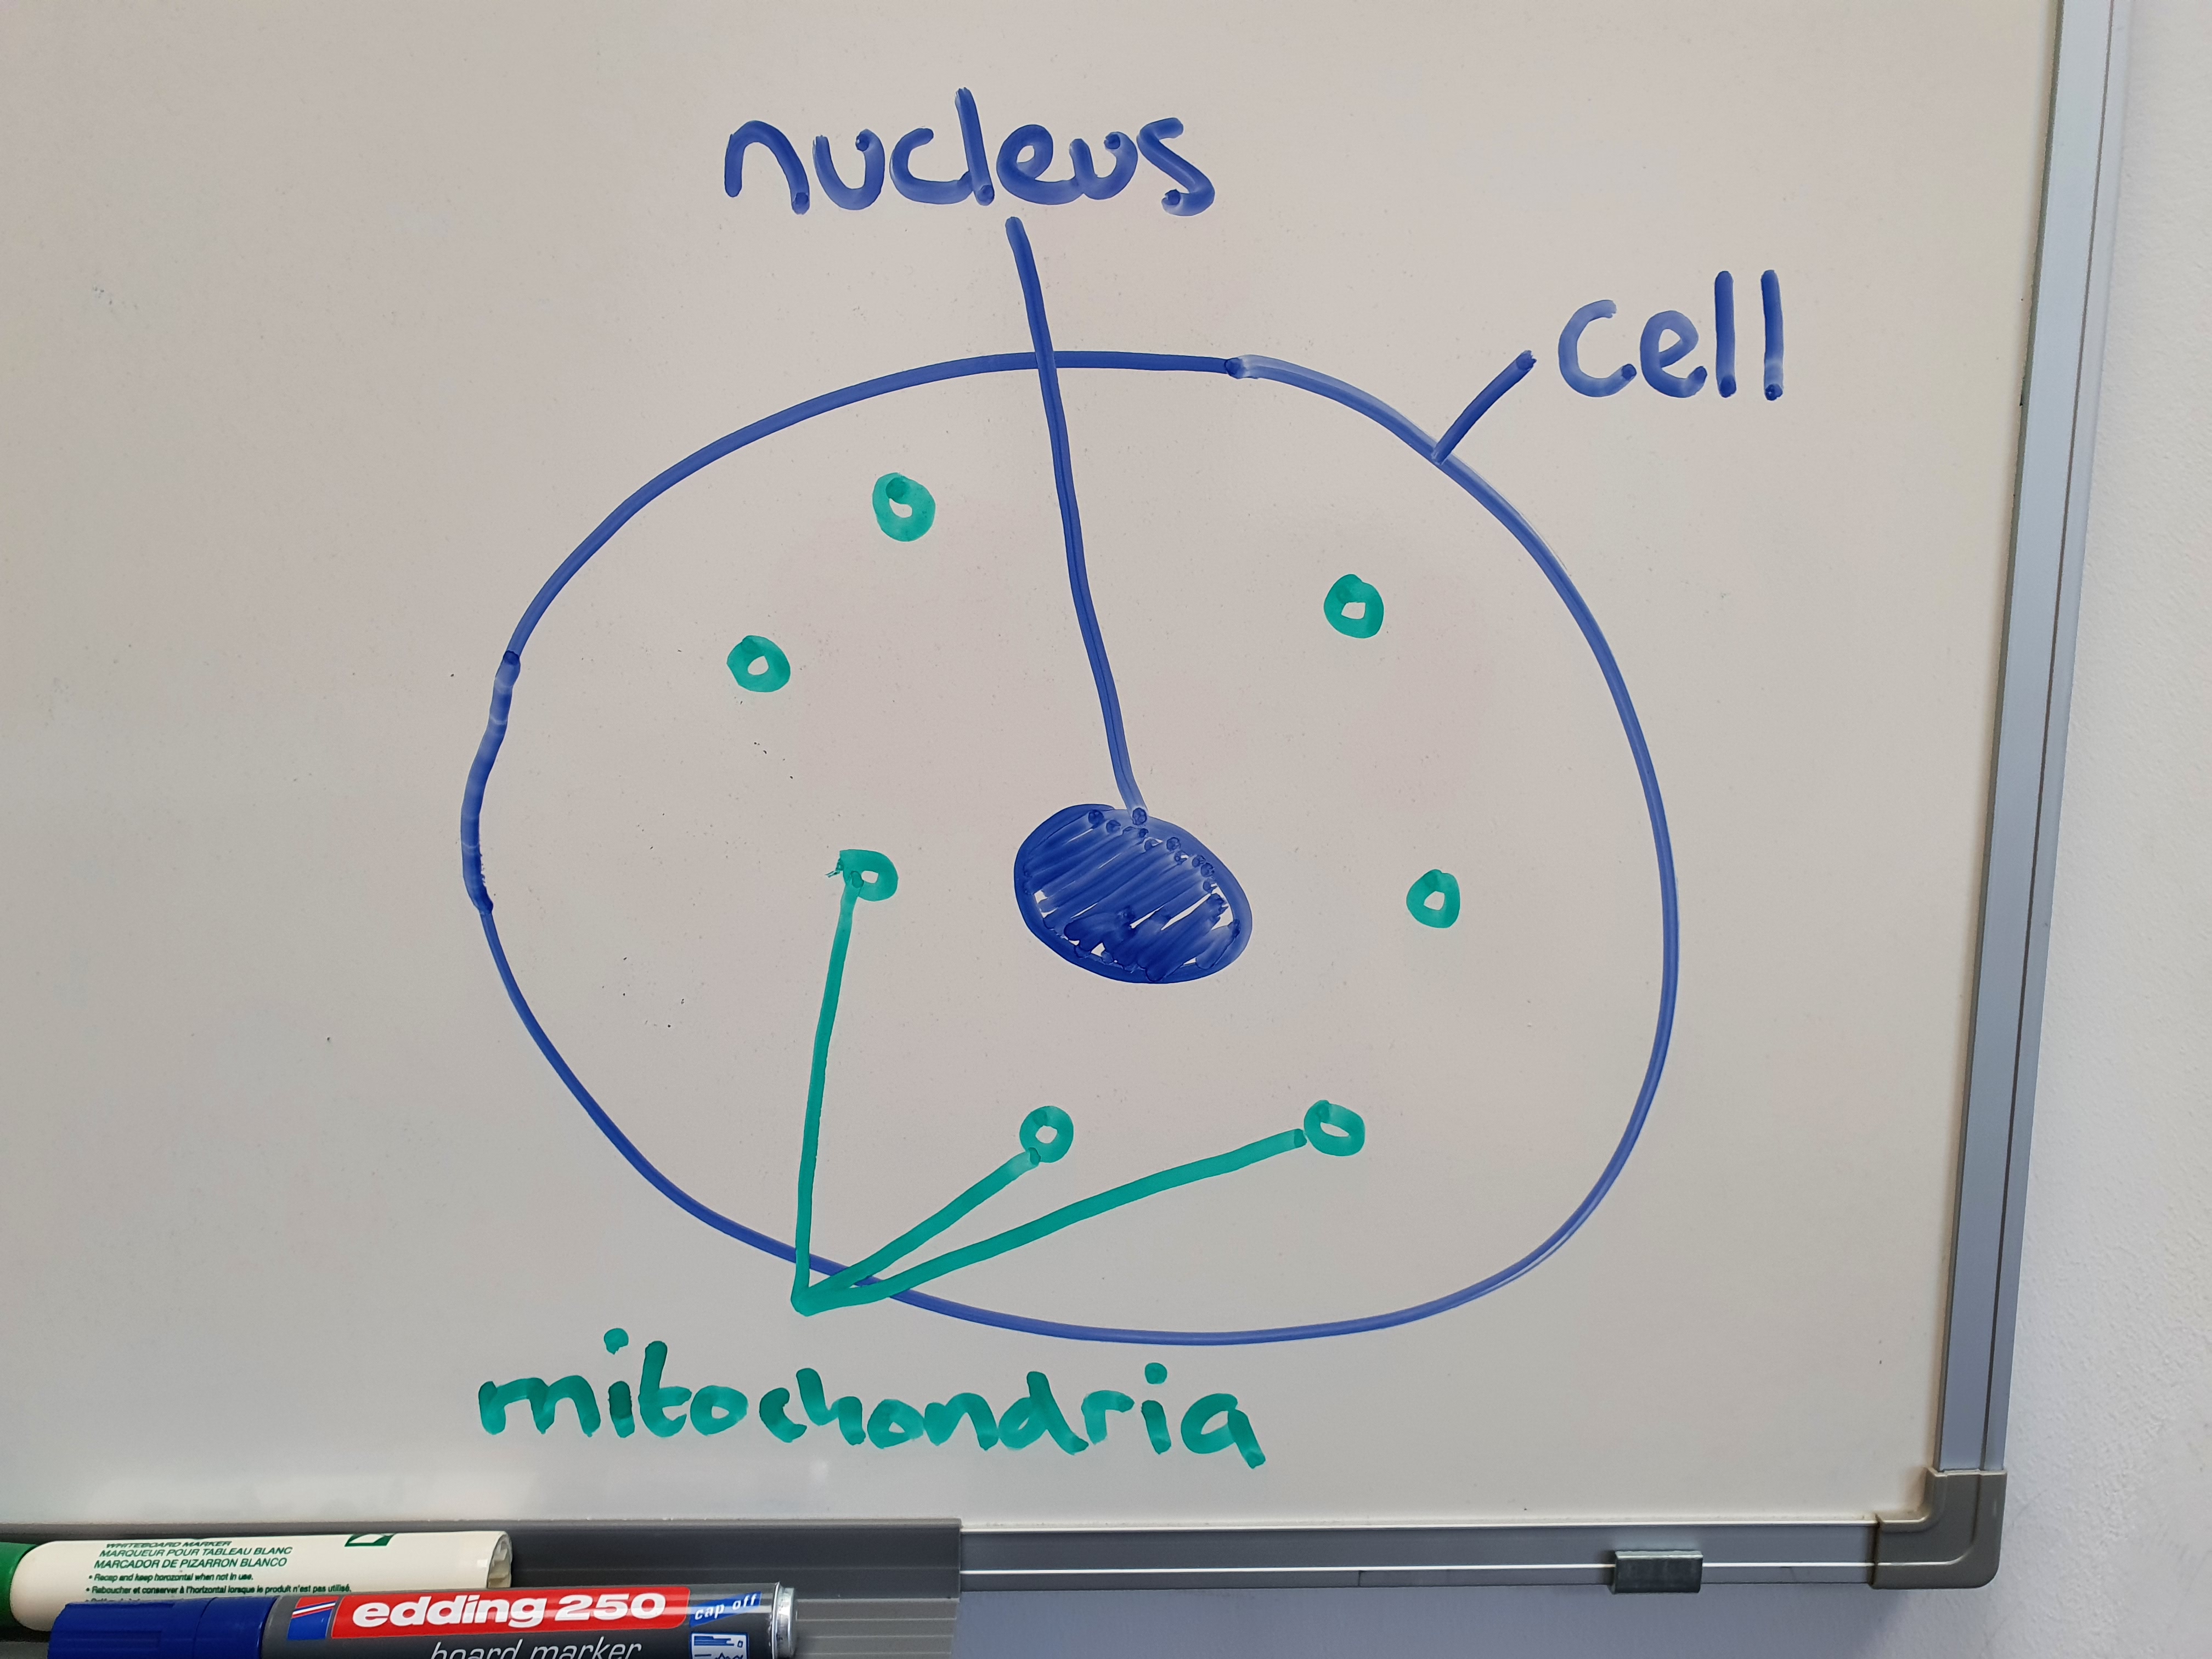 nucleus
cell
mitochondria
WHITEBOARD MARKER
MARQUEUR POUR TABLEAU BLANC
MARCADOR DE PIZARRON BLANCO
• Recap and keep horizontal when not in use.
• Reboucher et conserver à l'horizontal lorsque le produit n'est pas utilisé.
edding 250
cap off
board marker